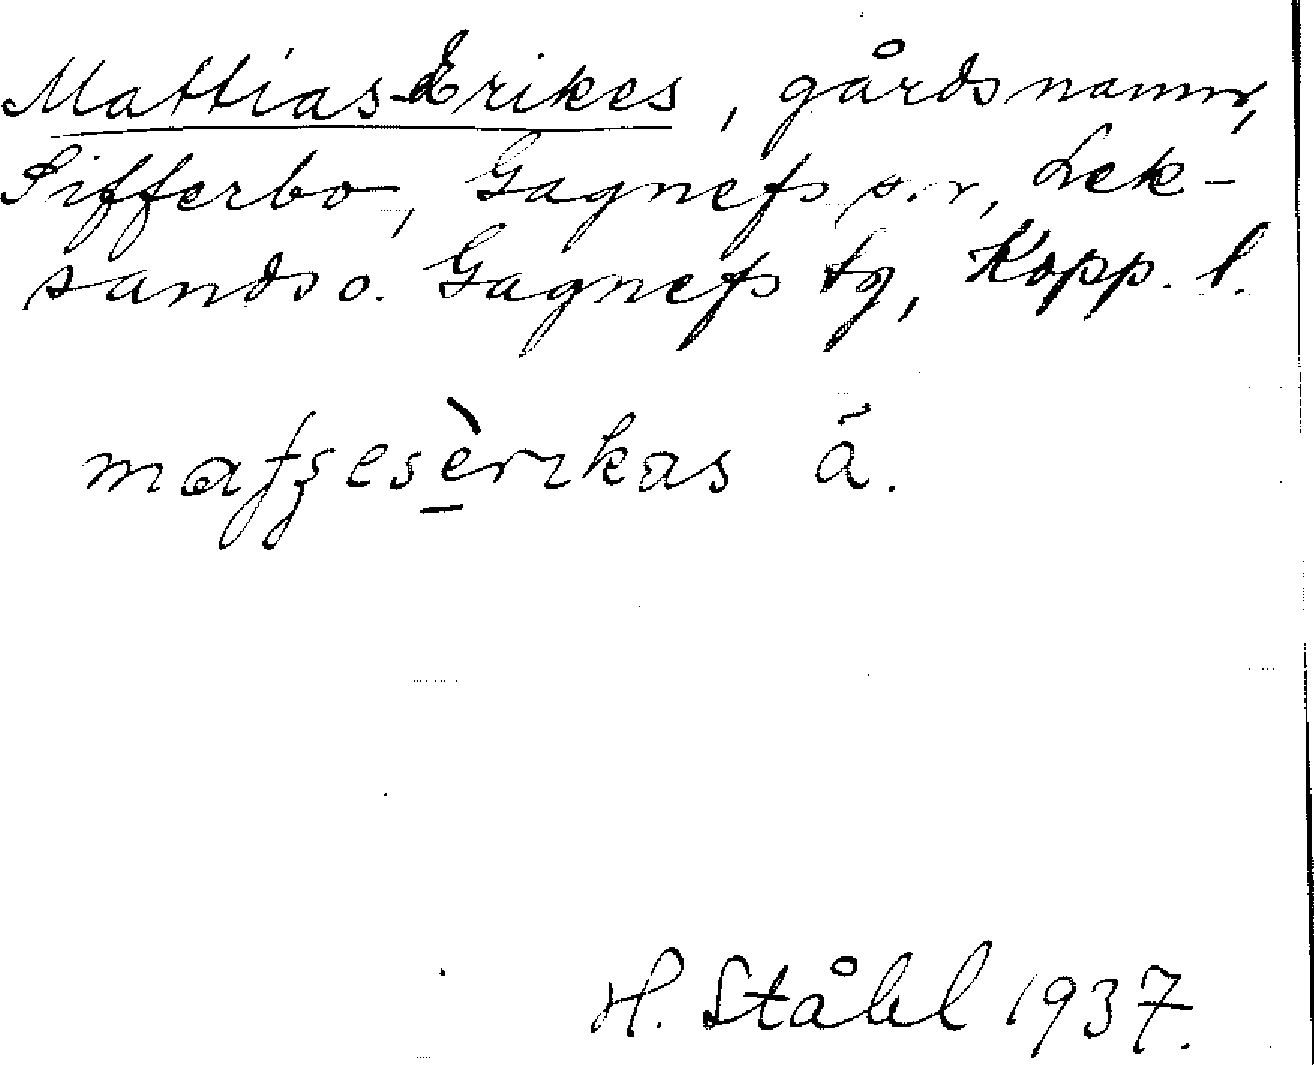 Mattias-Erikes, gårdsnamn,
Sifferbo, Gagnefs s:n, Lek-
sands o. Gagnefs tg, Kopp. l.
a.
H. Ståhl 1937.